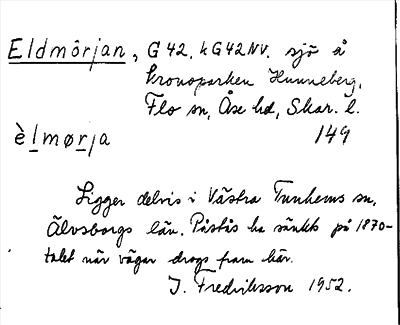 Eldmörjan, G42. kG42NV. sjö å
kronoparken Hunneberg,
Flo sn, Åse hd, Skar. l.
èlmørja 149
Ligger delvis i Västra Tunhems sn,
Älvsborgs län. Påstås ha sänkts på 1870-
talet när vägar drogs fram här.
J. Fredriksson 1952.